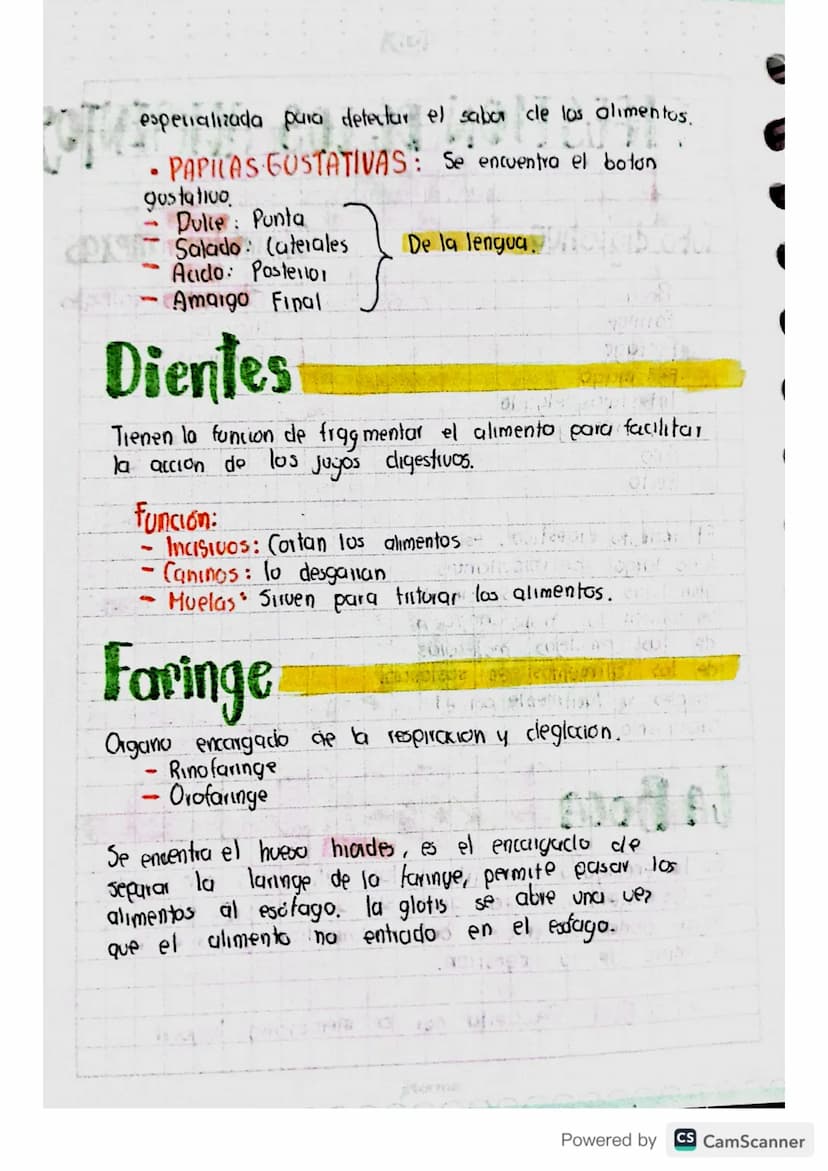 especializada para detectar el sabor de los alimentos.
• PAPILAS GUSTATIVAS: Se encuentra el boton
gustativo.
- Dulce: Punta
- Salado: Laterales
- Acido: Posterior
- Amargo Final
De la lengua.
Dientes
Tienen la funcion de fragmentar el alimento para facilitar
la accion de los jugos digestivos.
Función:
- Incisivos: Cortan los alimentos
- Caninos: lo desgarran
- Muelas: Sirven para triturar los alimentos.
Faringe
Organo encargado de la respiracion y deglucion.
- Rinofaringe
- Orofaringe
Se encentra el hueso hiodes, es el encargado de
separar la laringe de la faringe, permite pasar los
alimentos al esófago. la glotis se abre una vez
que el alimento no entrado en el esofago.
Powered by CS CamScanner